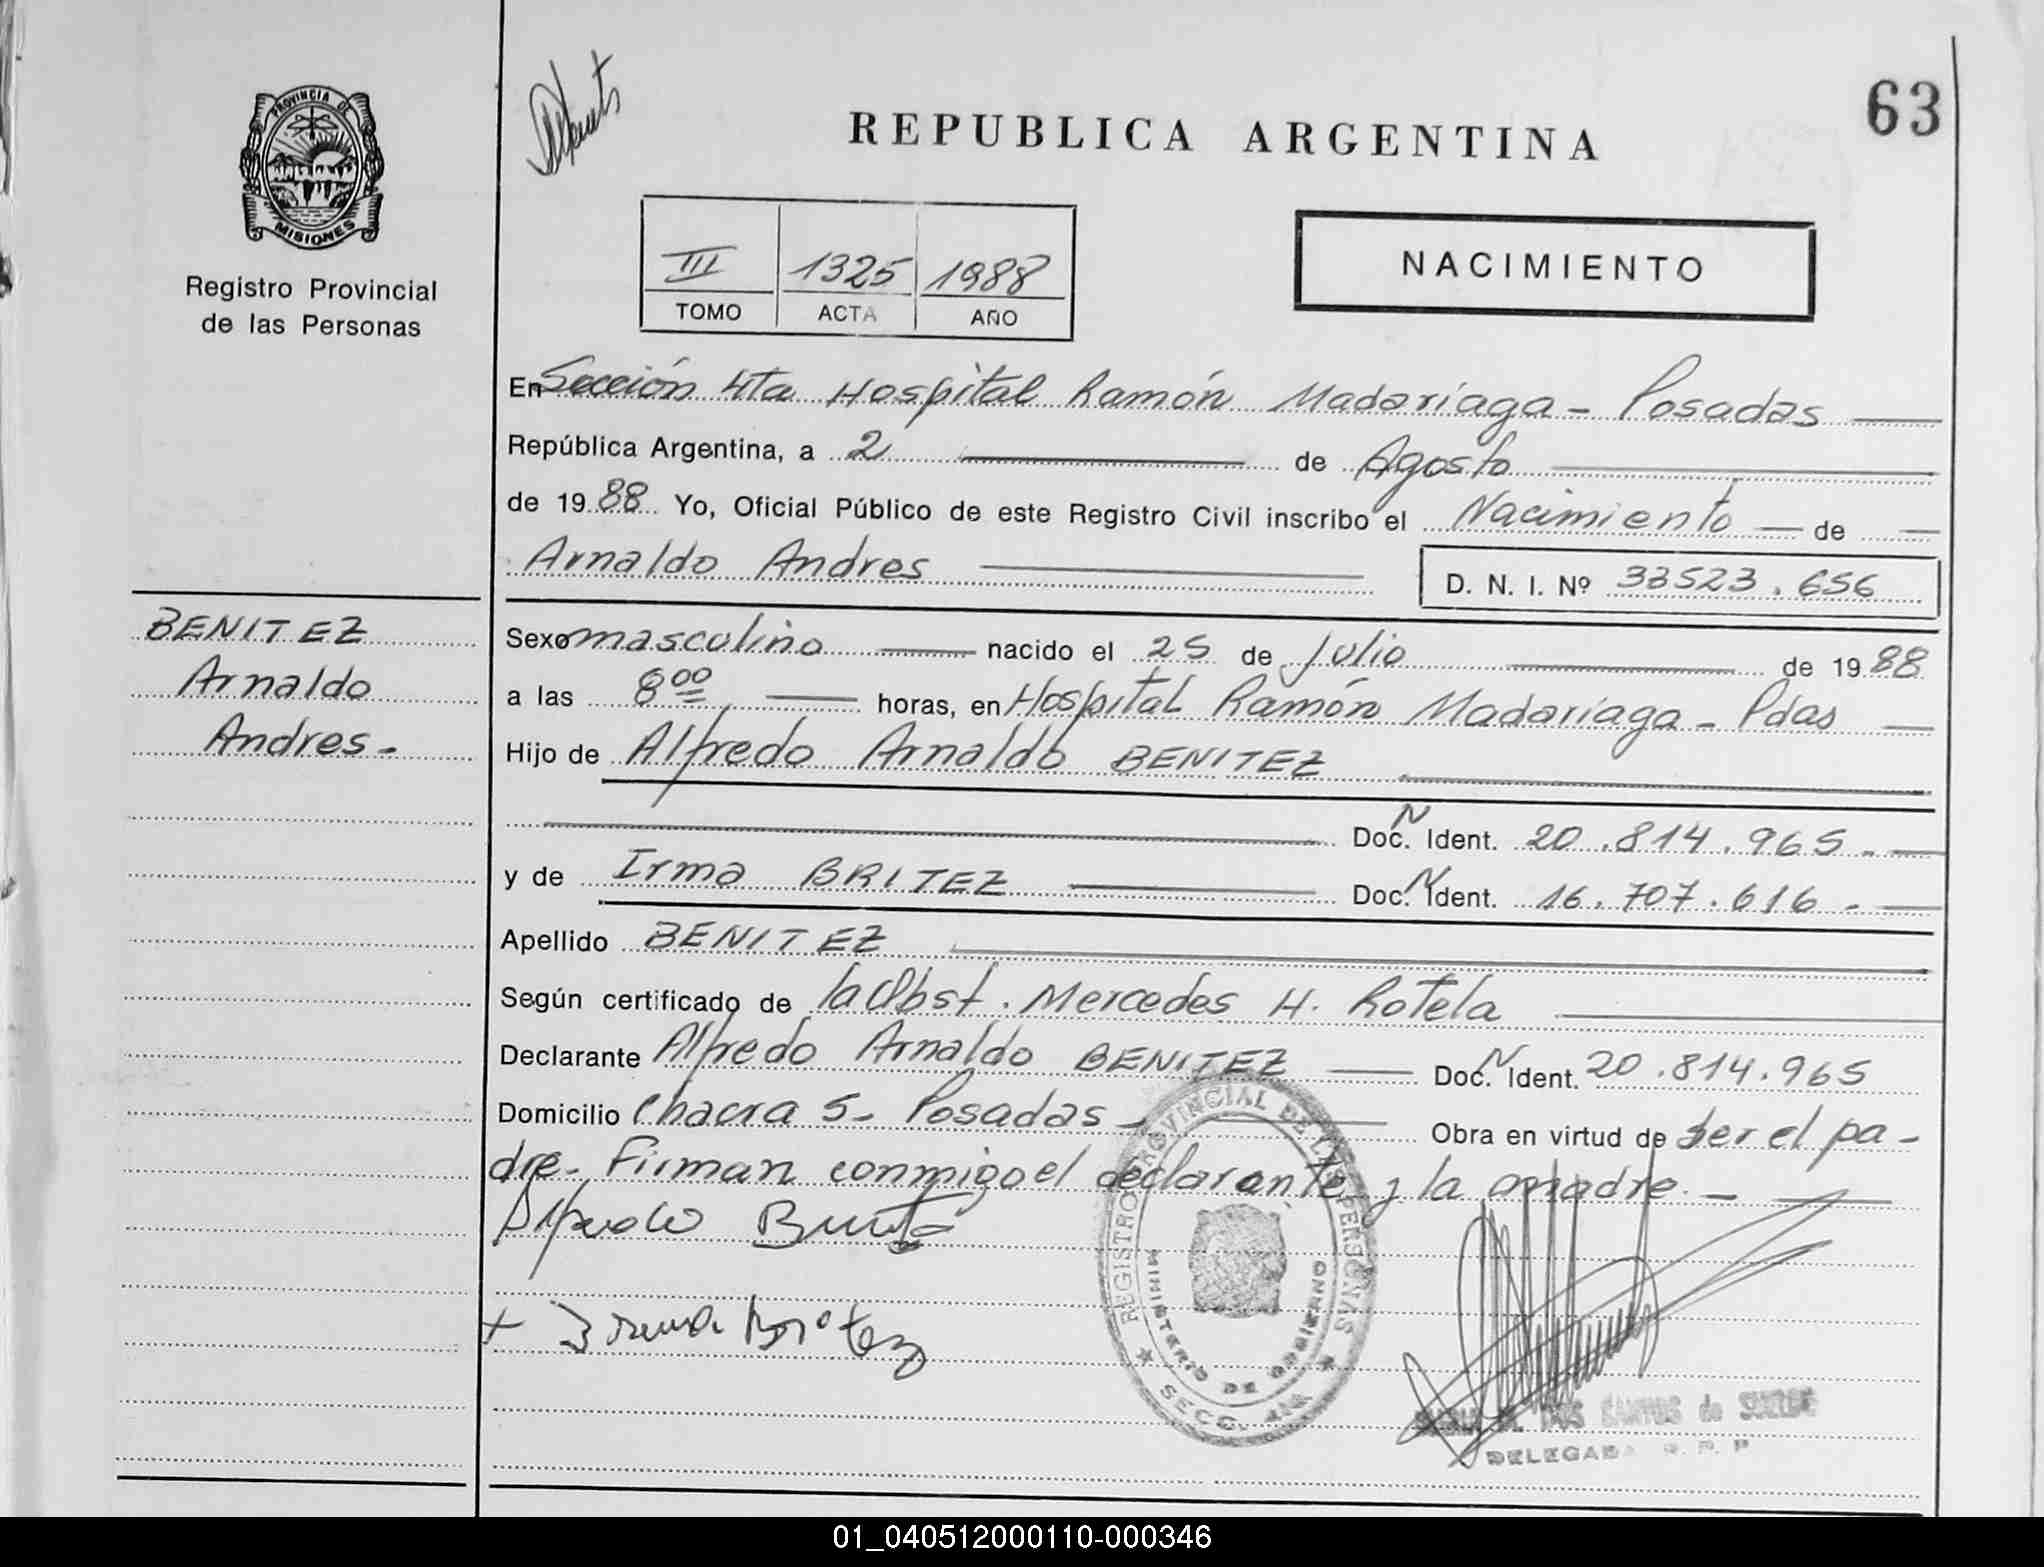 63
REPUBLICA ARGENTINA
PROVINCIA DE
MISIONES
Registro Provincial
de las Personas
NACIMIENTO
III 1325 1988
TOMO ACTA AÑO
En Sección 4ta Hospital Ramón Madariaga - Posadas
República Argentina, a 2 de Agosto
de 1988 Yo, Oficial Público de este Registro Civil inscribo el Nacimiento de
Arnaldo Andres D. N. I. Nº 33523.656
BENITEZ
Arnaldo
Andres -
Sexo masculino nacido el 25 de Julio de 1988
a las 8 00 horas, en Hospital Ramón Madariaga - Pdas
Hijo de Alfredo Arnaldo BENITEZ
Doc. N Ident. 20.814.965 -
y de Irma BRITEZ Doc. N Ident. 16.707.616 -
Apellido BENITEZ
Según certificado de la Obst. Mercedes H. Rotela
Declarante Alfredo Arnaldo BENITEZ Doc. N Ident. 20.814.965
Domicilio Chacra 5 - Posadas - Obra en virtud de ser el pa-
dre - Firman conmigo el declarante y la madre. -
REGISTRO PROVINCIAL DE LAS PERSONAS
MINISTERIO DE GOBIERNO
SECC. 4ta
DOS SANTOS de
DELEGADA R. P. P
01_040512000110-000346